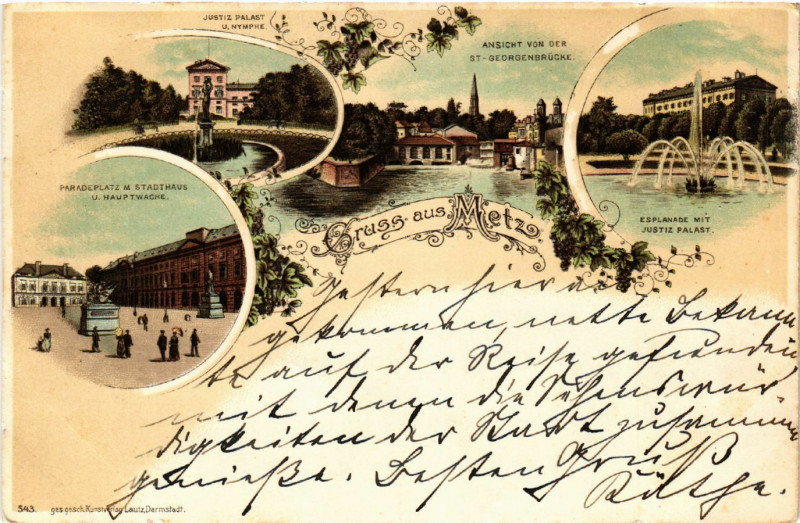 JUSTIZ PALAST
U. NYMPHE.
ANSICHT VON DER
ST-GEORGENBRÜCKE.
PARADEPLATZ M. STADTHAUS
U. HAUPTWACHE.
ESPLANADE MIT
JUSTIZ PALAST.
Gruss aus Metz.
Gestern hier an
gekommen, nette Bekann
te auf der Reise gefunden
mit denen die Sehenswür-
digkeiten der Stadt zusammen
genieße. Besten Gruß
Käthe.
343. ges.gesch. Kunstverlag Lautz, Darmstadt.